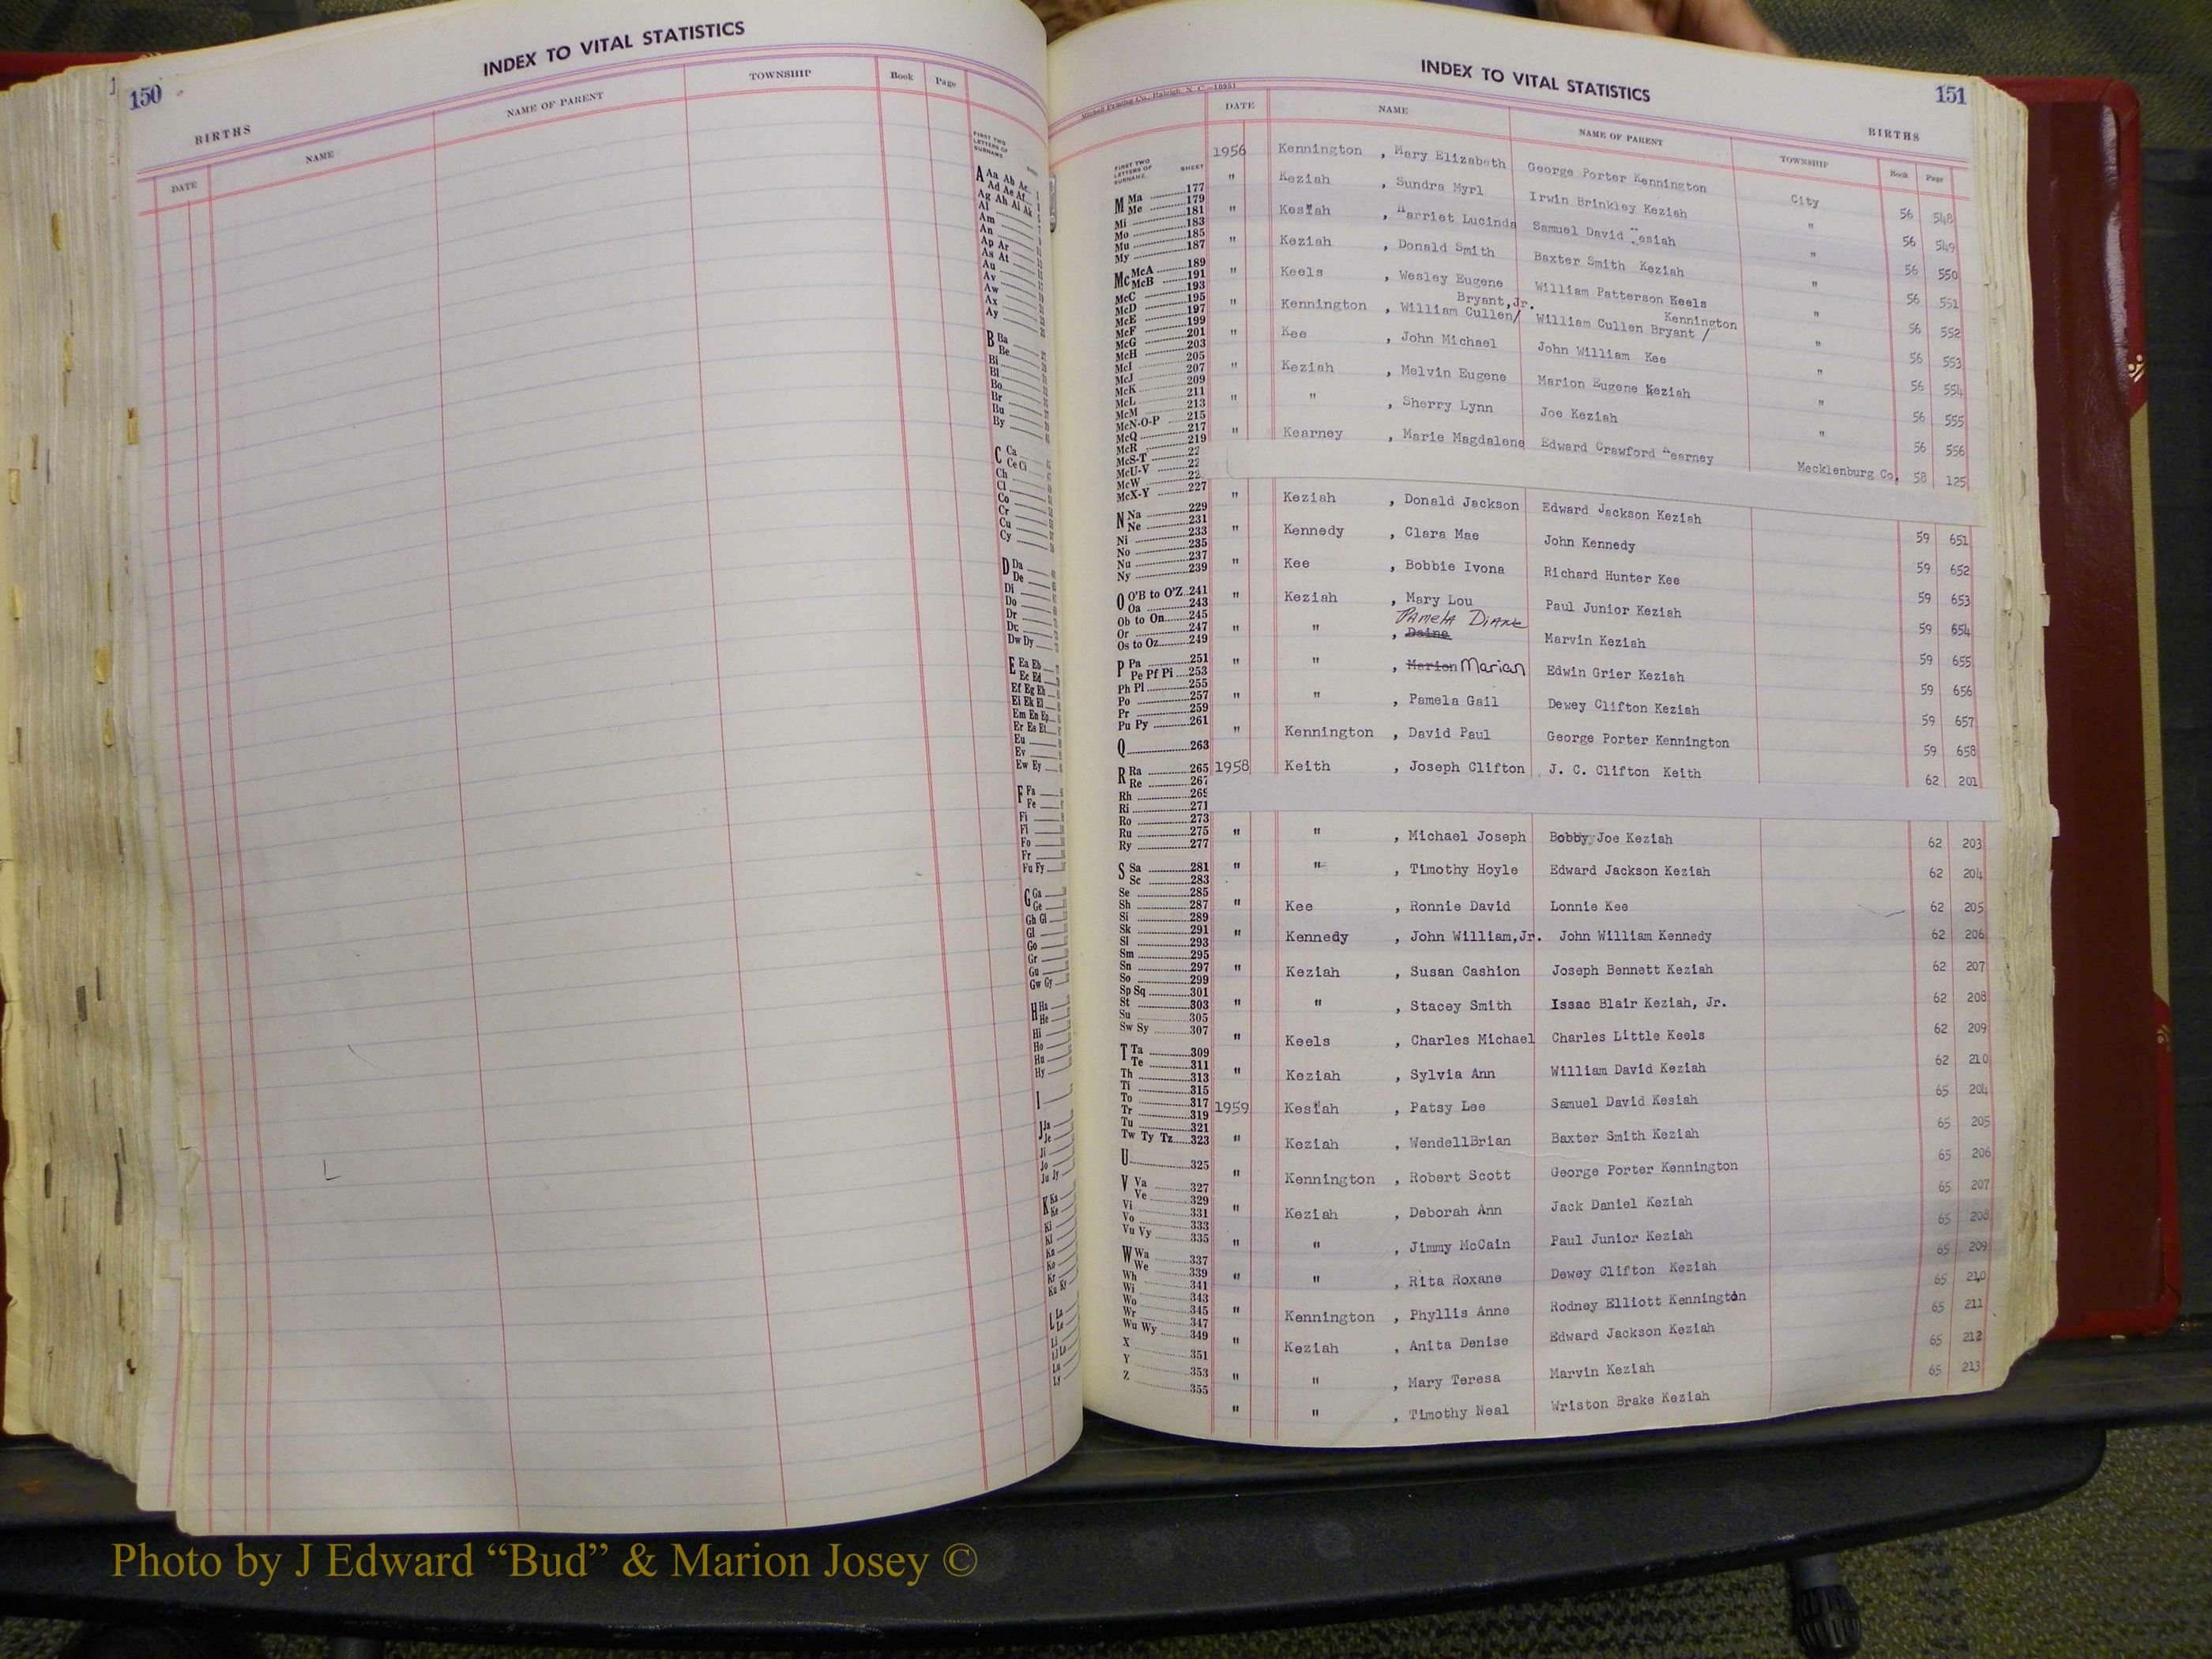 150
INDEX TO VITAL STATISTICS
BIRTHS
DATE NAME NAME OF PARENT TOWNSHIP Book Page
FIRST TWO
LETTERS OF
SURNAME
A Aa Ab Ac
Ad Ae Af
Ag Ah Ai Ak
Al
Am
An
Ap Ar
As At
Au
Av
Aw
Ax
Ay
B Ba
Be
Bi
Bl
Bo
Br
Bu
By
C Ca
Ce Ci
Ch
Cl
Co
Cr
Cu
Cy
D Da
De
Di
Do
Dr
Du
Dw Dy
E Ea Eb
Ec Ed
Ef Eg Eh
Ei Ek El
Em En Ep
Er Es Et
Eu
Ev
Ew Ey
F Fa
Fe
Fi
Fl
Fo
Fr
Fu Fy
G Ga
Ge
Gh Gi
Gl
Go
Gr
Gu
Gw Gy
H Ha
He
Hi
Ho
Hu
Hy
I
J Ja
Je
Ji
Jo
Ju Jy
K Ka
Ke
Ki
Kl
Kn
Ko
Kr
Ku Ky
L La
Le
Li
Lo
Lu
Ly
INDEX TO VITAL STATISTICS
151
Mitchell Printing Co., Raleigh, N. C.—16951
BIRTHS
DATE NAME NAME OF PARENT TOWNSHIP Book Page
FIRST TWO
LETTERS OF
SURNAME SHEET
M Ma 177
Me 179
Mi 181
Mo 183
Mu 185
My 187
Mc McA 189
McB 191
McC 193
McD 195
McE 197
McF 199
McG 201
McH 203
McI 205
McJ 207
McK 209
McL 211
McM 213
McN-O-P 215
McQ 217
McR 219
McS-T 22
McU-V 22
McW 22
McX-Y 227
N Na 229
Ne 231
Ni 233
No 235
Nu 237
Ny 239
O O'B to O'Z 241
Oa 243
Ob to On 245
Or 247
Os to Oz 249
P Pa 251
Pe Pf Pi 253
Ph Pl 255
Po 257
Pr 259
Pu Py 261
Q 263
R Ra 265
Re 267
Rh 269
Ri 271
Ro 273
Ru 275
Ry 277
S Sa 281
Sc 283
Se 285
Sh 287
Si 289
Sk 291
Sl 293
Sm 295
Sn 297
So 299
Sp Sq 301
St 303
Su 305
Sw Sy 307
T Ta 309
Te 311
Th 313
Ti 315
To 317
Tr 319
Tu 321
Tw Ty Tz 323
U 325
V Va 327
Ve 329
Vi 331
Vo 333
Vu Vy 335
W Wa 337
We 339
Wh 341
Wi 343
Wo 345
Wr 347
Wu Wy 349
X 351
Y 353
Z 355
1956 Kennington , Mary Elizabeth George Porter Kennington City 56 548
" Keziah , Sundra Myrl Irwin Brinkley Keziah " 56 549
" Kesiah , Harriet Lucinda Samuel David Kesiah " 56 550
" Keziah , Donald Smith Baxter Smith Keziah " 56 551
" Keels , Wesley Eugene William Patterson Keels " 56 552
Bryant,Jr. Kennington
" Kennington , William Cullen/ William Cullen Bryant / " 56 553
" Kee , John Michael John William Kee " 56 554
" Keziah , Melvin Eugene Marion Eugene Keziah " 56 555
" " , Sherry Lynn Joe Keziah " 56 556
" Kearney , Marie Magdalene Edward Crawford Kearney Mecklenburg Co. 58 125
" Keziah , Donald Jackson Edward Jackson Keziah 59 651
" Kennedy , Clara Mae John Kennedy 59 652
" Kee , Bobbie Ivona Richard Hunter Kee 59 653
" Keziah , Mary Lou Paul Junior Keziah 59 654
Pamela Diane
" " , Daine Marvin Keziah 59 655
" " , Marion Marian Edwin Grier Keziah 59 656
" " , Pamela Gail Dewey Clifton Keziah 59 657
" Kennington , David Paul George Porter Kennington 59 658
1958 Keith , Joseph Clifton J. C. Clifton Keith 62 201
" " , Michael Joseph Bobby Joe Keziah 62 203
" " , Timothy Hoyle Edward Jackson Keziah 62 204
" Kee , Ronnie David Lonnie Kee 62 205
" Kennedy , John William,Jr. John William Kennedy 62 206
" Keziah , Susan Cashion Joseph Bennett Keziah 62 207
" " , Stacey Smith Issac Blair Keziah, Jr. 62 208
" Keels , Charles Michael Charles Little Keels 62 209
" Keziah , Sylvia Ann William David Keziah 62 210
1959 Kesiah , Patsy Lee Samuel David Kesiah 65 204
" Keziah , WendellBrian Baxter Smith Keziah 65 205
" Kennington , Robert Scott George Porter Kennington 65 206
" Keziah , Deborah Ann Jack Daniel Keziah 65 207
" " , Jimmy McCain Paul Junior Keziah 65 208
" " , Rita Roxane Dewey Clifton Keziah 65 209
" Kennington , Phyllis Anne Rodney Elliott Kennington 65 210
" Keziah , Anita Denise Edward Jackson Keziah 65 211
" " , Mary Teresa Marvin Keziah 65 212
" " , Timothy Neal Wriston Brake Keziah 65 213
Photo by J Edward “Bud” & Marion Josey ©